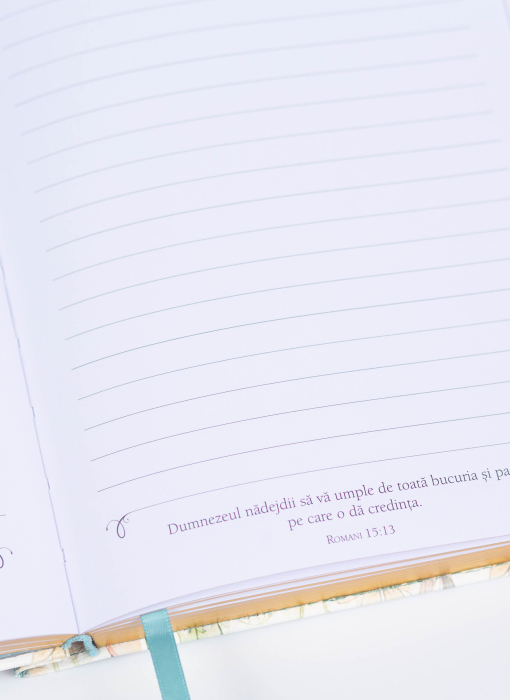 Dumnezeul nădejdii să vă umple de toată bucuria și pa
pe care o dă credința.
Romani 15:13